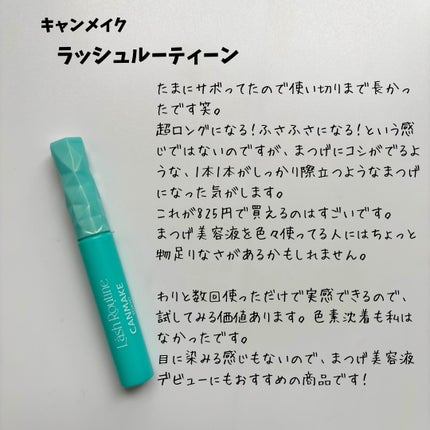 キャンメイク
ラッシュルーティーン
たまにサボってたので使い切りまで長かっ
たです笑。
超ロングになる！ふさふさになる！という感
じではないのですが、まつげにコシがでるよ
うな、1本1本がしっかり際立つようなまつげ
になった気がします。
これが825円で買えるのはすごいです。
まつげ美容液を色々使ってる人にはちょっと
物足りなさがあるかもしれません。
わりと数回使っただけで実感できるので、
試してみる価値あります。色素沈着も私は
なかったです。
目に染みる感じもないので、まつげ美容液
デビューにもおすすめの商品です！
Lash Routine
CANMAKE